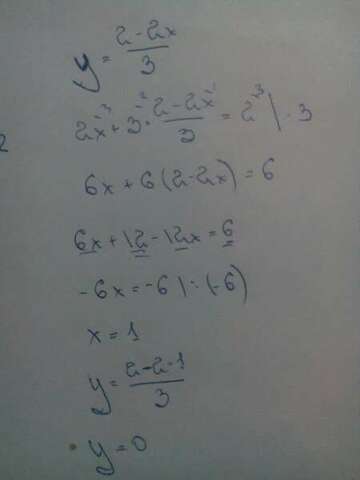 y = (2-2x)/3
2x³ + 3² · (2-2x¹)/3 = 2³ | · 3
6x + 6(2-2x) = 6
6x + 12 - 12x = 6
-6x = -6 | : (-6)
x = 1
y = (2-2·1)/3
y = 0